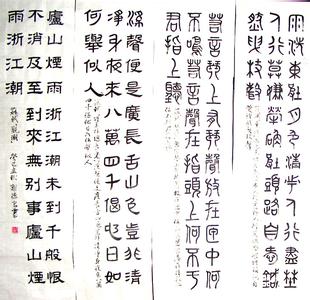 雨洗東坡月色清市人行盡野
人行莫嫌犖确坡頭路自愛鏗
然曳杖聲
若言琴上有琴聲放在匣中何
不鳴若言聲在指頭上何不于
君指上聽
溪聲便是廣長舌山色豈非清
淨身夜來八萬四千偈他日如
何舉似人
廬山煙雨浙江潮未到千般恨
不消及至到來無別事廬山煙
雨浙江潮
蘇軾觀潮